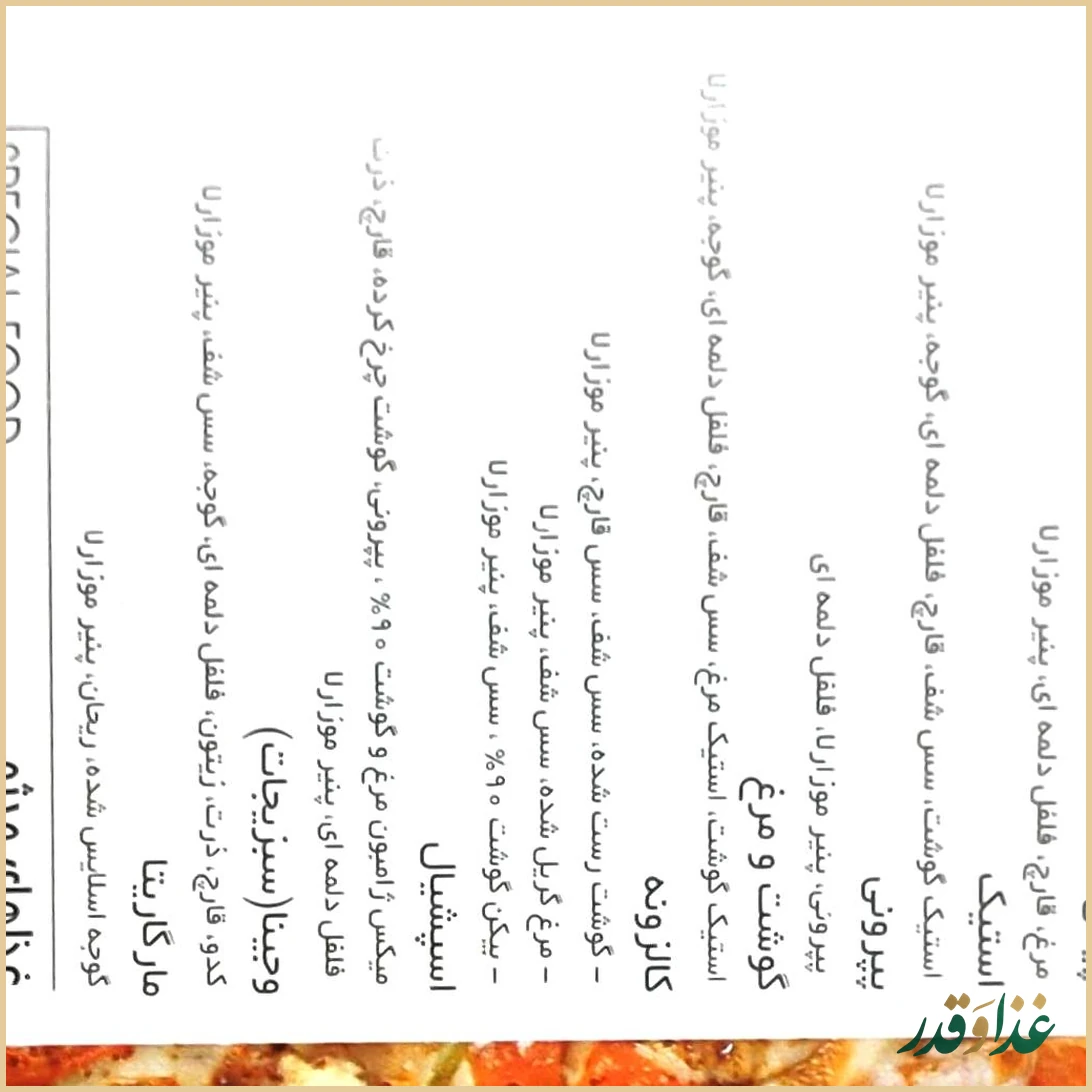 مرغ، قارچ، فلفل دلمه ای، پنیر موزارلا
استیک
استیک گوشت، سس شف، قارچ، فلفل دلمه ای، گوجه، پنیر موزارلا
پپرونی
پپرونی، پنیر موزارلا، فلفل دلمه ای
گوشت و مرغ
استیک گوشت، استیک مرغ، سس شف، قارچ، فلفل دلمه ای، گوجه، پنیر موزارلا
کالزونه
- گوشت رست شده، سس شف، سس قارچ، پنیر موزارلا
- مرغ گریل شده، سس شف، پنیر موزارلا
- بیکن گوشت ۹۰%، سس شف، پنیر موزارلا
اسپشیال
میکس ژامبون مرغ و گوشت ۹۰%، پپرونی، گوشت چرخ کرده، قارچ، ذرت
فلفل دلمه ای، پنیر موزارلا
وجیینا(سبزیجات)
کدو، قارچ، ذرت، زیتون، فلفل دلمه ای، گوجه، سس شف، پنیر موزارلا
مارگاریتا
گوجه اسلایس شده، ریحان، پنیر موزارلا
غذاهای ویژه
SPECIAL FOOD
غذا و قدر